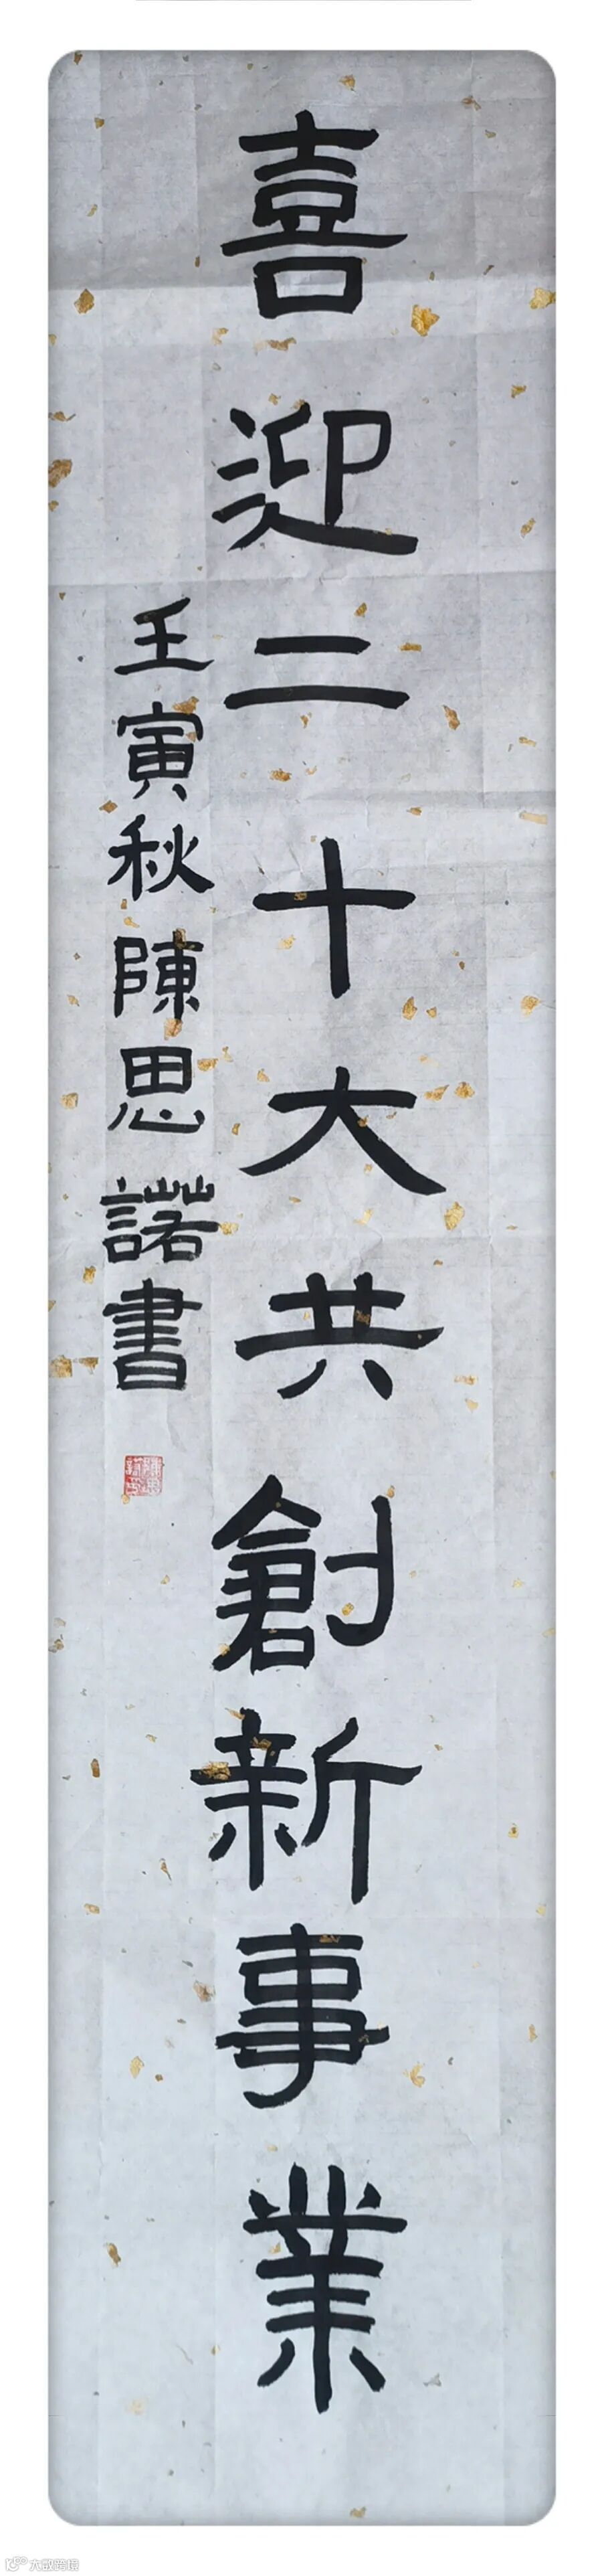 喜迎二十大共創新事業
壬寅秋陳思諾書
大數跨境